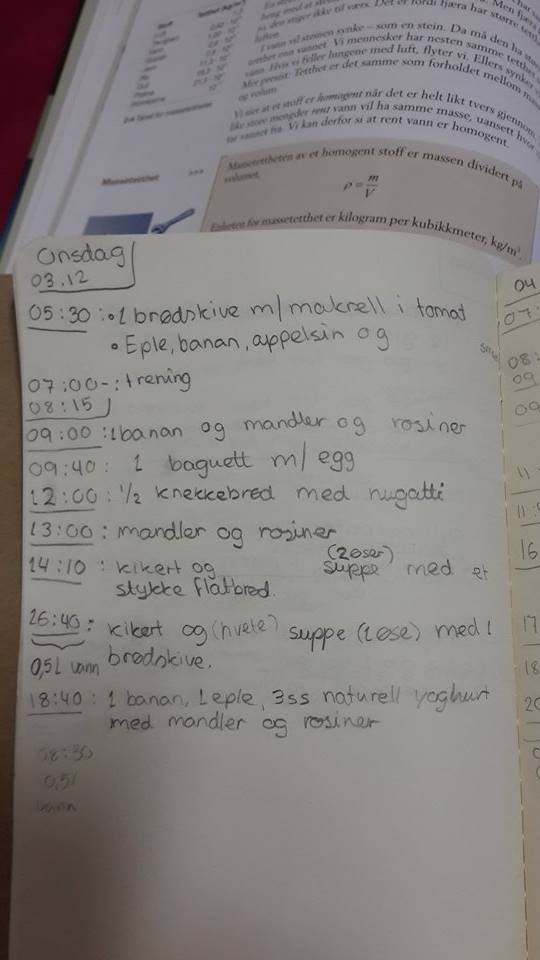 Men fjæra
Det er fordi fjæra har større tetthet
til værs.
den stiger ikke
luften.
I vann vil steinen synke – som en stein. Da må den ha større
tetthet enn vannet. Vi mennesker har nesten samme tetthet
vann. Hvis vi fyller lungene med luft, flyter vi. Ellers synker
Mer presist: Tetthet er det samme som forholdet mellom masse
og volum.
Vi sier at et stoff er homogent når det er helt likt tvers gjennom.
like store mengder rent vann vil ha samme masse, uansett hvor
tar vannet fra. Vi kan derfor si at rent vann er homogent.
Massetetthet >>>
Massetettheten av et homogent stoff er massen dividert på
volumet.
ρ = m/V
Enheten for massetetthet er kilogram per kubikkmeter, kg/m³
Onsdag
03.12
05:30 : • 1 brødskive m/ makrell i tomat
• Eple, banan, appelsin og
07:00- : trening
08:15
09:00 : 1 banan og mandler og rosiner
09:40 : 1 baguett m/ egg
12:00 : 1/2 knekkebrød med nugatti
13:00 : mandler og rosiner
14:10 : kikert og suppe (2øser) med et
stykke flatbrød.
16:40 : kikert og (hvete) suppe (1øse) med 1
0,5L vann brødskive.
18:40 : 1 banan, 1 eple, 3ss naturell yoghurt
med mandler og rosiner
08:30
0,5l
vann
04
07:
08:
09
09
11:
11:
16
17
18
20